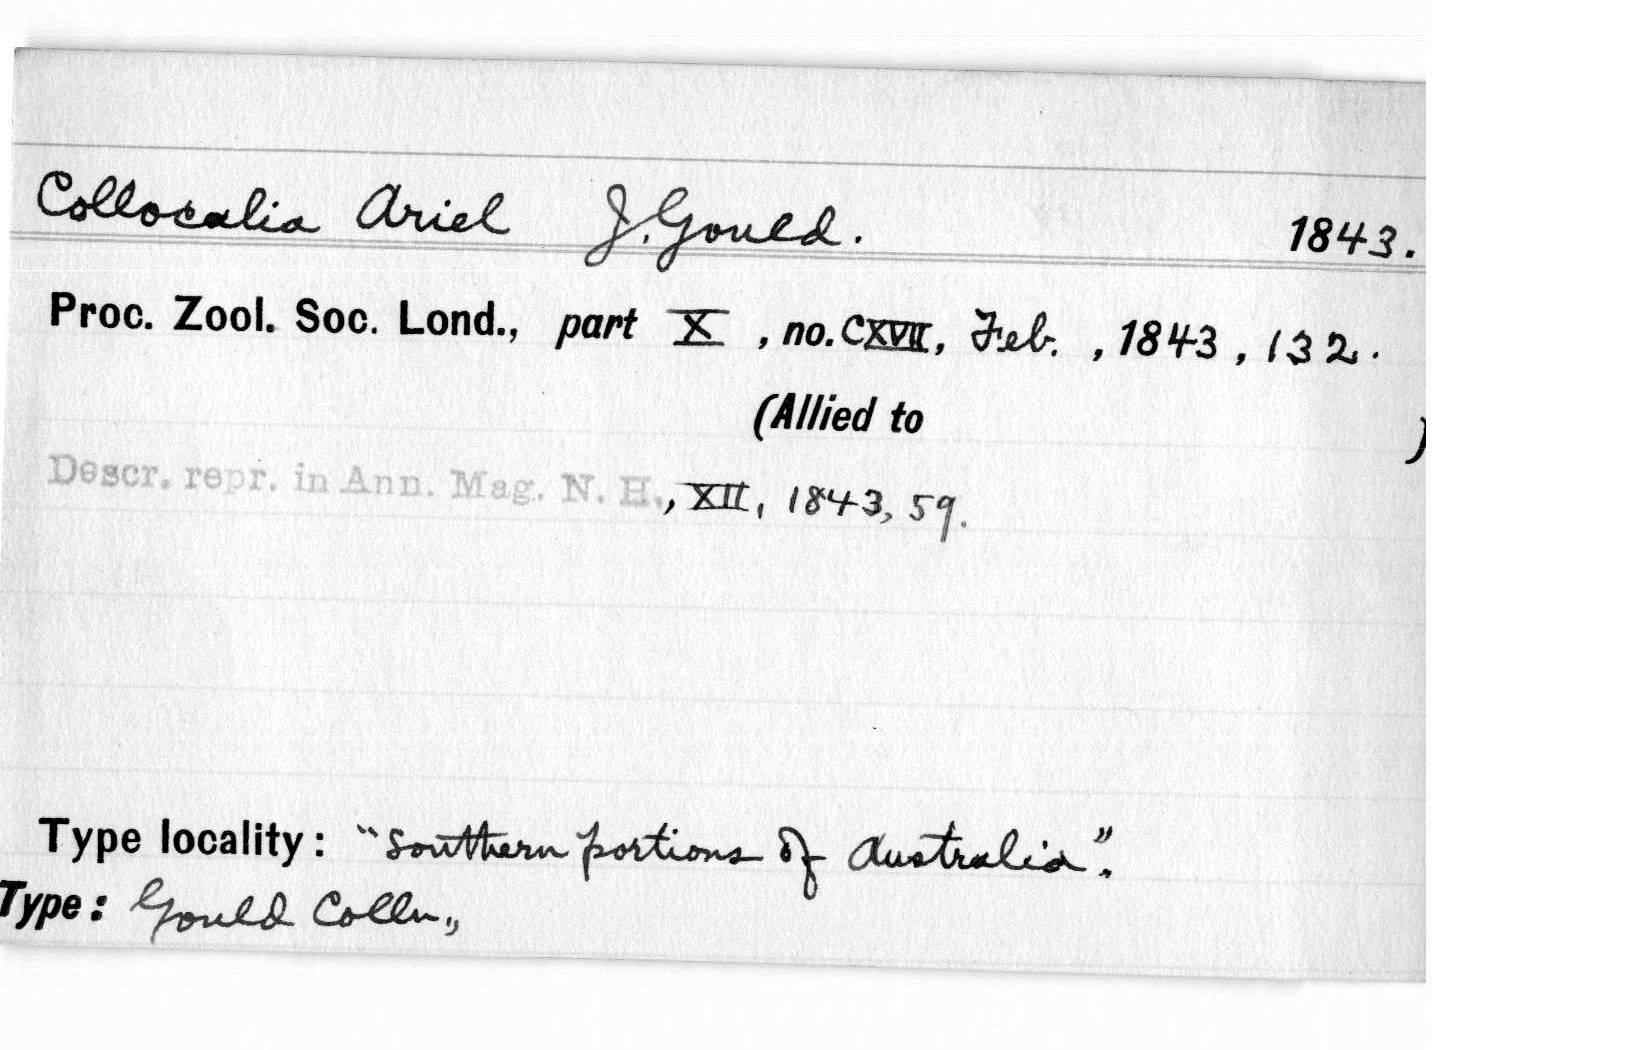 Collocalia Ariel J. Gould. 1843.
Proc. Zool. Soc. Lond., part X, no. CXVII, Feb., 1843, 132.
(Allied to )
Descr. repr. in Ann. Mag. N. H., XII, 1843, 59.
Type locality: "Southern portions of Australia".
Type: Gould Colln.,